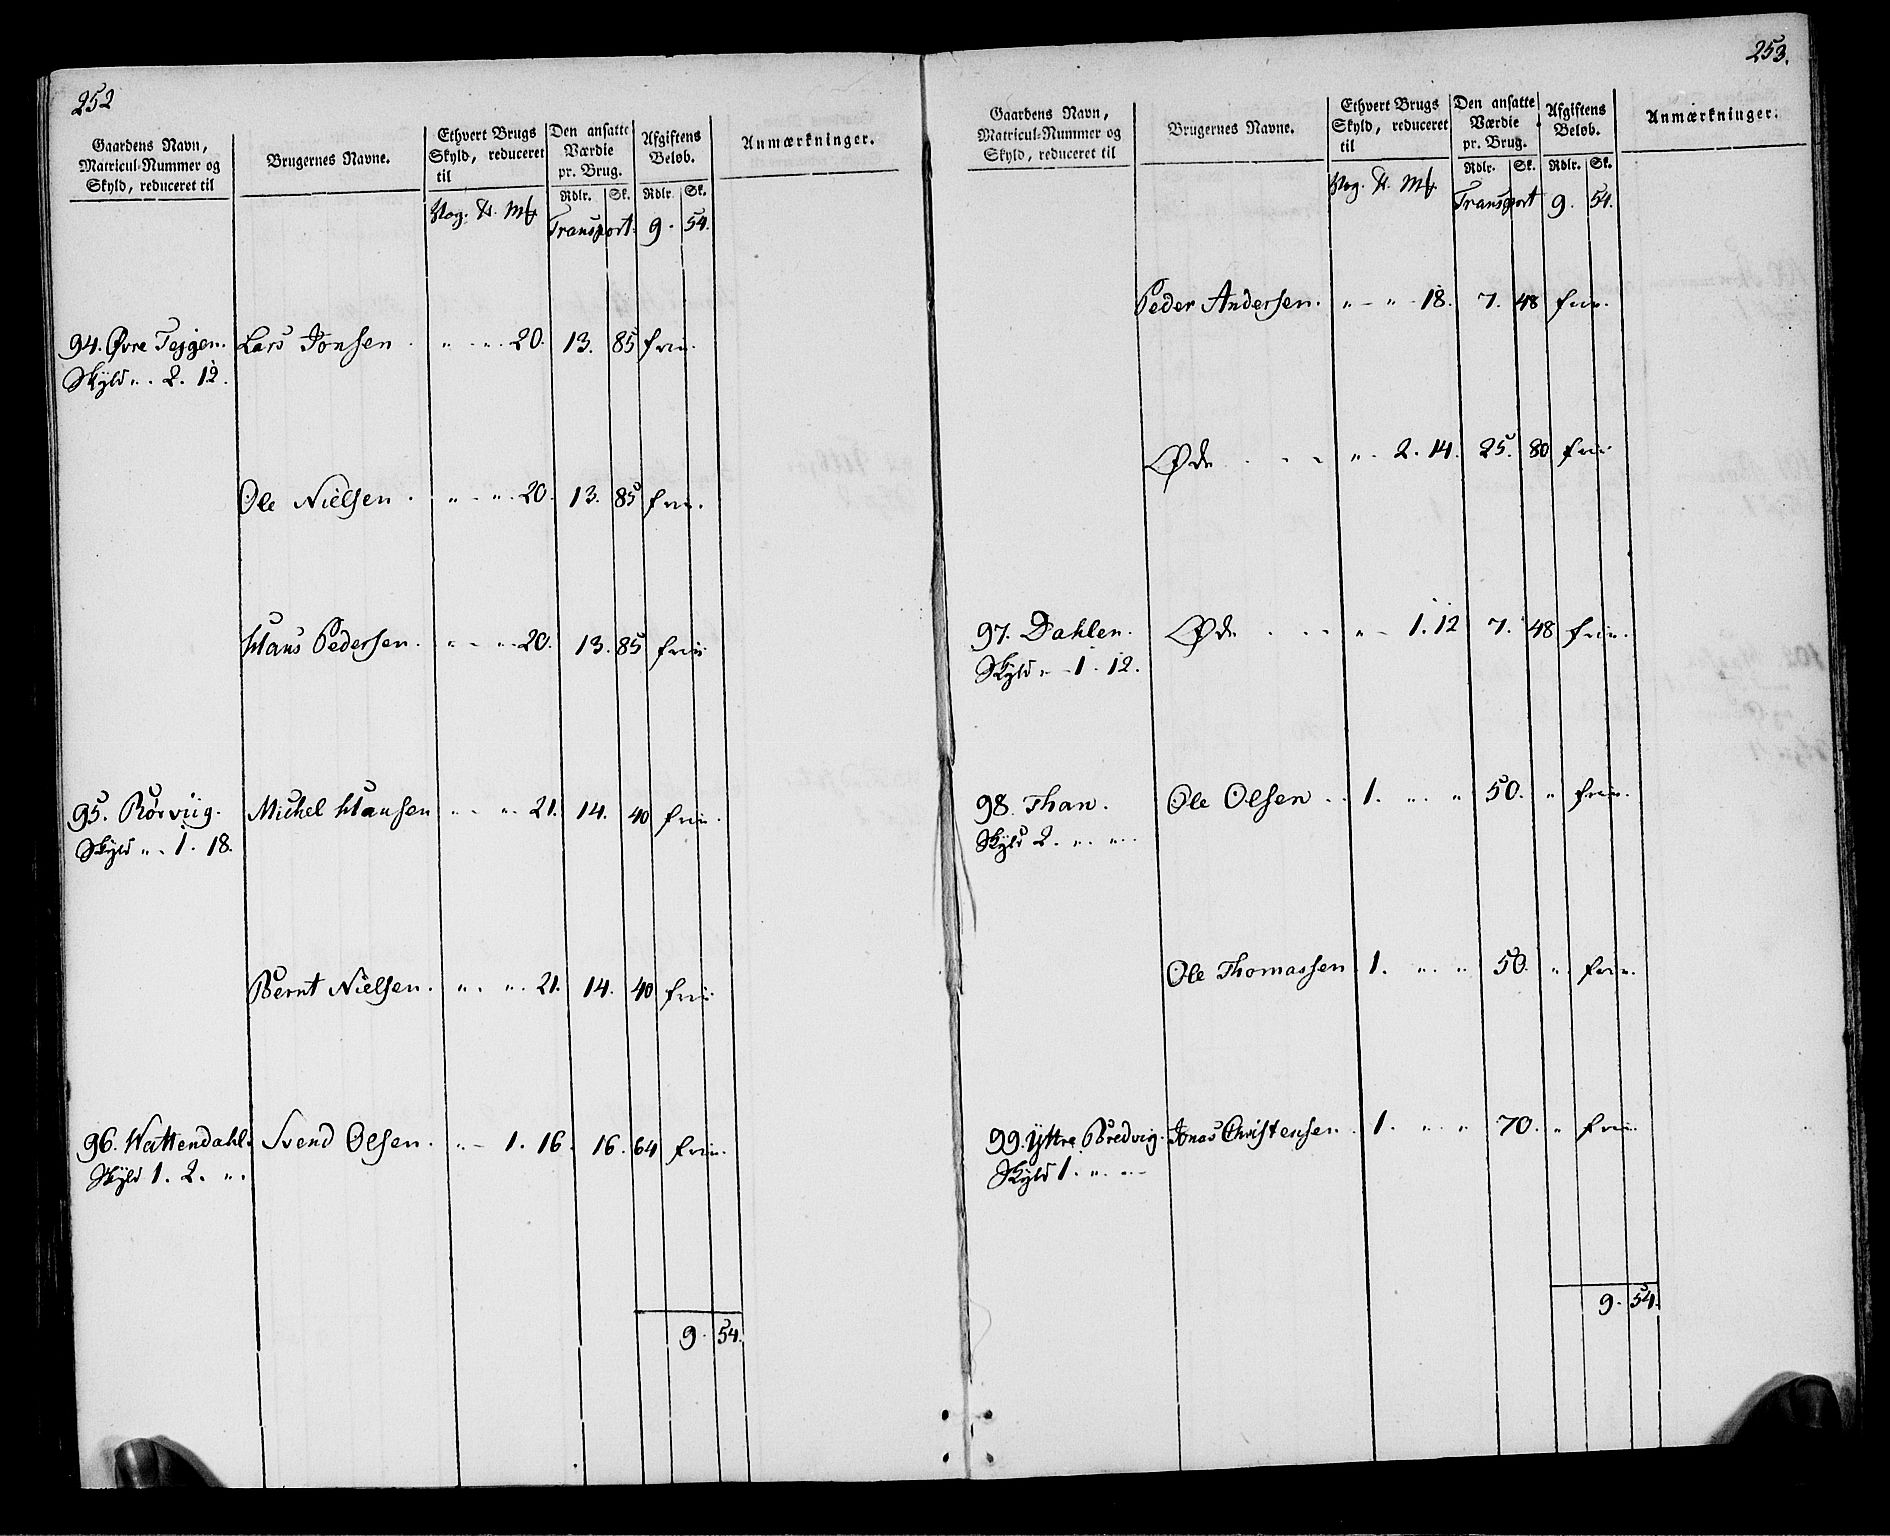 252
Gaardens Navn, Matricul-Nummer og Skyld, reduceret til
Brugernes Navne.
Ethvert Brugs Skyld, reduceret til
Den ansatte Værdie pr. Brug.
Afgiftens Beløb.
Anmærkninger.
Rdlr. Sk. Rdlr. Sk.
Vog. ℔. Mk
Transport. 9. 54.
94. Øvre Tejgen. Lars Jonsen . " - ". 20. 13. 85 frie.
Skyld ". 2. 12.
Ole Nielsen . " - ". 20. 13. 85 frie.
Hans Pedersen. " - ". 20. 13. 85 frie
95. Rörviig. Michel Hansen " - ". 21. 14. 40 frie.
Skyld ". 1. 18.
Bernt Nielsen. ". ". 21. 14. 40 frie
96. Wattendahl. Svend Olsen. " - 1. 16. 16. 64 frie.
Skyld 1. 2. ".
9. 54.
253.
Gaardens Navn, Matricul-Nummer og Skyld, reduceret til
Brugernes Navne.
Ethvert Brugs Skyld, reduceret til
Den ansatte Værdie pr. Brug.
Afgiftens Beløb.
Anmærkninger.
Rdlr. Sk. Rdlr. Sk.
Vog. ℔. Mk.
Transport 9. 54.
Peder Andersen. " - " - 18. 7. 48 frie.
Øde . . . ". 2. 14. 25. 80 frie
97. Dahlen. Øde . . . " - 1. 12 7. 48 frie.
Skyld " - 1. 12.
98. Than. Ole Olsen . . 1. ". " 50. " frie.
Skyld 2. ". ".
Ole Thomassen 1. ". " 50. ". frie.
99. Yttre Bredvig. Jonas Christensen. 1. " " 70. " frie.
Skyld 1. ". "
9. 54.